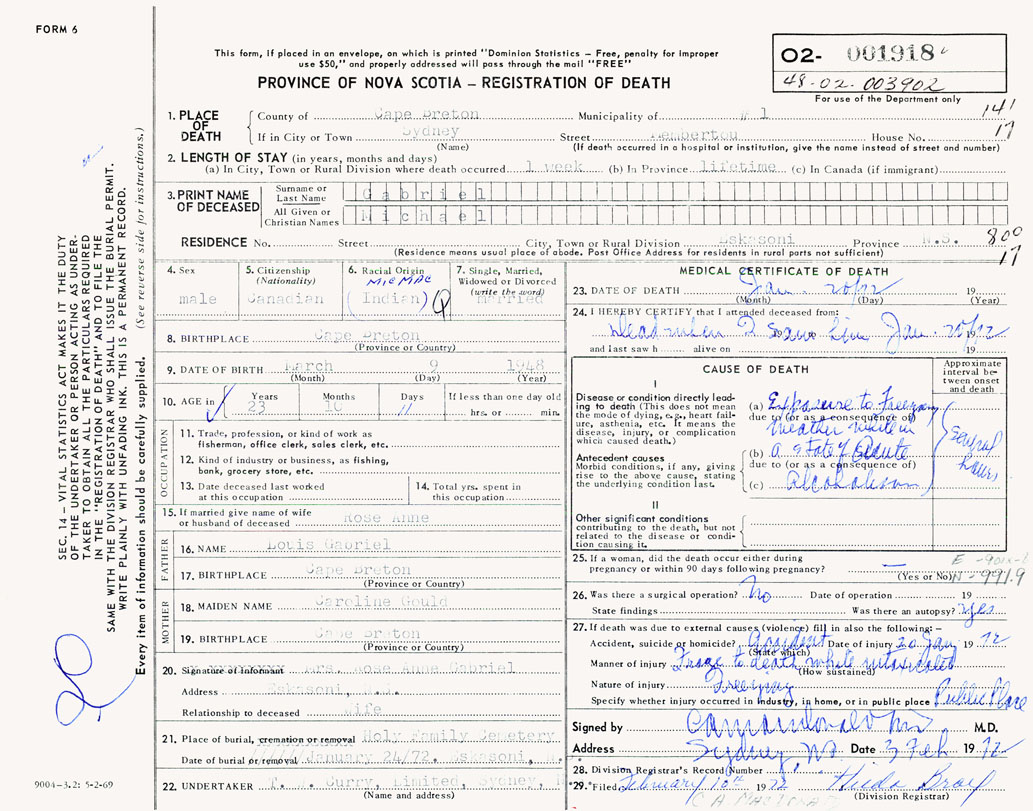 FORM 6
This form, if placed in an envelope, on which is printed "Dominion Statistics – Free, penalty for improper
use $50," and properly addressed will pass through the mail "FREE"
PROVINCE OF NOVA SCOTIA – REGISTRATION OF DEATH
02- 001918
48-02-003902
For use of the Department only
1. PLACE OF DEATH
County of Cape Breton Municipality of # 1 141
If in City or Town Sydney Street Pemberton House No. 17
(Name) (If death occurred in a hospital or institution, give the name instead of street and number)
2. LENGTH OF STAY (in years, months and days)
(a) In City, Town or Rural Division where death occurred 1 week (b) In Province lifetime (c) In Canada (if immigrant)
3. PRINT NAME OF DECEASED
Surname or Last Name Gabriel
All Given or Christian Names Michael
RESIDENCE No. Street City, Town or Rural Division Eskasoni Province N.S. 800
(Residence means usual place of abode. Post Office Address for residents in rural parts not sufficient) 17
4. Sex
male
5. Citizenship
(Nationality)
Canadian
6. Racial Origin
MICMAC
(Indian)
7. Single, Married,
Widowed or Divorced
(write the word)
Married
8. BIRTHPLACE Cape Breton
(Province or Country)
9. DATE OF BIRTH March 9 1948
(Month) (Day) (Year)
10. AGE in
Years
23
Months
10
Days
11
If less than one day old
hrs. or min.
OCCUPATION
11. Trade, profession, or kind of work as
fisherman, office clerk, sales clerk, etc.
12. Kind of industry or business, as fishing,
bank, grocery store, etc.
13. Date deceased last worked
at this occupation
14. Total yrs. spent in
this occupation
15. If married give name of wife
or husband of deceased Rose Anne
FATHER
16. NAME Louis Gabriel
17. BIRTHPLACE Cape Breton
(Province or Country)
MOTHER
18. MAIDEN NAME Caroline Gould
19. BIRTHPLACE Cape Breton
(Province or Country)
20. Signature of Informant Mrs. Rose Anne Gabriel
Address Eskasoni, N.S.
Relationship to deceased Wife
21. Place of burial, cremation or removal Holy Family Cemetery
Date of burial or removal January 24/72. Eskasoni,
22. UNDERTAKER T. J. Curry, Limited, Sydney, N.
(Name and address)
MEDICAL CERTIFICATE OF DEATH
23. DATE OF DEATH Jan. 20/72 19
(Month) (Day) (Year)
24. I HEREBY CERTIFY that I attended deceased from:
Dead when I saw him Jan. 20/72 19
and last saw h alive on 19
CAUSE OF DEATH
Approximate interval between onset and death
I
Disease or condition directly leading to death (This does not mean the mode of dying, e.g., heart failure, asthenia, etc. It means the disease, injury, or complication which caused death.)
(a) Exposure to Freezing
due to (or as a consequence of)
weather while in
Antecedent causes
Morbid conditions, if any, giving rise to the above cause, stating the underlying condition last.
(b) a state of acute
due to (or as a consequence of)
(c) Alcoholism
several hours
II
Other significant conditions
contributing to the death, but not related to the disease or condition causing it.
25. If a woman, did the death occur either during
pregnancy or within 90 days following pregnancy? —
(Yes or No) N-991.9
26. Was there a surgical operation? No Date of operation 19
State findings Was there an autopsy? Yes
27. If death was due to external causes (violence) fill in also the following: –
Accident, suicide or homicide? Accident Date of injury 20 Jan 1972
(State which)
Manner of injury Froze to death while intoxicated
(How sustained)
Nature of injury Freezing
Specify whether injury occurred in industry, in home, or in public place Public Place
Signed by M.D.
Address Sydney, NS Date 3 Feb 1972
28. Division Registrar's Record Number
29. Filed February 10th 1972
(Division Registrar)
C. A. MacDONALD
SEC. 14 – VITAL STATISTICS ACT MAKES IT THE DUTY
OF THE UNDERTAKER OR PERSON ACTING AS UNDER-
TAKER TO OBTAIN ALL THE PARTICULARS REQUIRED
IN THE "REGISTRATION OF DEATH" AND TO FILE THE
SAME WITH THE DIVISION REGISTRAR WHO SHALL ISSUE THE BURIAL PERMIT.
WRITE PLAINLY WITH UNFADING INK. THIS IS A PERMANENT RECORD.
Every item of information should be carefully supplied. (See reverse side for instructions.)
9004-3.2: 5-2-69